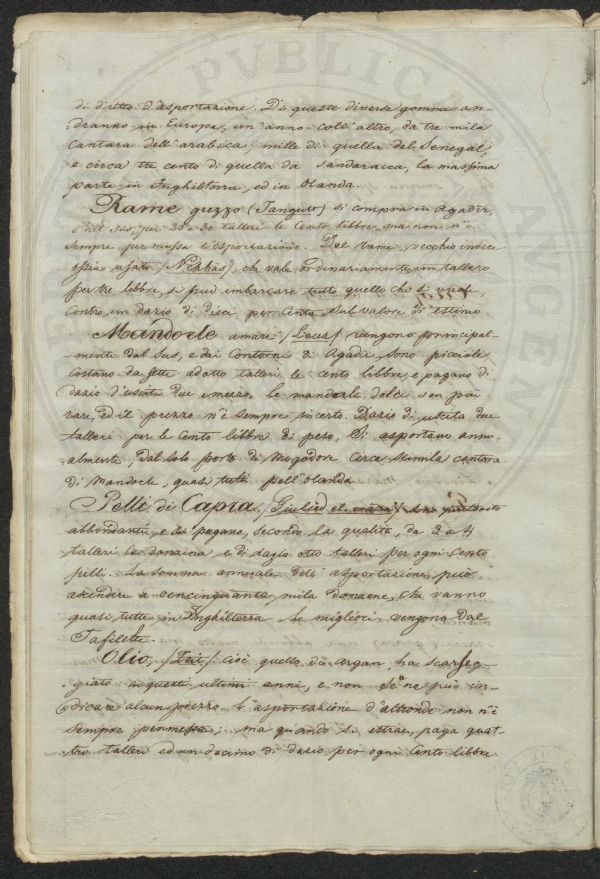 di diritto d'asportazione. Di queste diverse gomme an-
dranno in Europa, un'anno coll'altro, da tre mila
Cantara dell'arabica, mille di quella del Senegal,
e circa tre cento di quella da Sandaracca, la massima
parte in Inghilterra, ed in Olanda.
Rame guzzo (Tangult) si compra in Agadir,
talleri le Cento libbre, ma non n'è
sempre permessa l'esportazione. Del rame vecchio
ossia usato (Nehhàs), che vale ordinariamente un tallero
per tre libbre, si può imbarcare tutto quello che si vuol
Contro un dazio di Dieci per Cento sul valore di estimo
Mandorle amare (Leus) vengono principal-
mente dal Sus, e dai Contorni d'Agadir, sono picciole
Costano da sette adotto talleri le cento libbre, e pagano di
dazio d'uscita due emezzo. Le mandorle dolci son più
rare, ed il prezzo n'è sempre incerto. Dazio di uscita due
talleri per le Cento libbre di peso. Si asportano annu-
almente, dal solo porto di Mogodore Cerca seimila cantara
di Mandorle, quasi tutti pell'Olanda
Pelli di Capra, (Giulud el maaz) sono
abbondanti, e si pagano, secondo la qualità, da 2 a 4
talleri la donzina, e di dazio otto talleri per ogni Cento
pelli. La somma annuale dell'asportazione, può
ascendere a cencinquanta mila donzene, che vanno
quasi tutte in Inghilterra. Le migliori vengono dal
Tafilett.
Olio, (Zeit) cioè quello di argan, ha scarseg-
giato in questi ultimi anni, e non se ne può in-
dicare alcun prezzo. L'asportazione d'altronde non n'è
sempre permessa; ma quando si estrae, paga quat-
tro talleri ed un decimo di dazio per ogni Cento libbre.